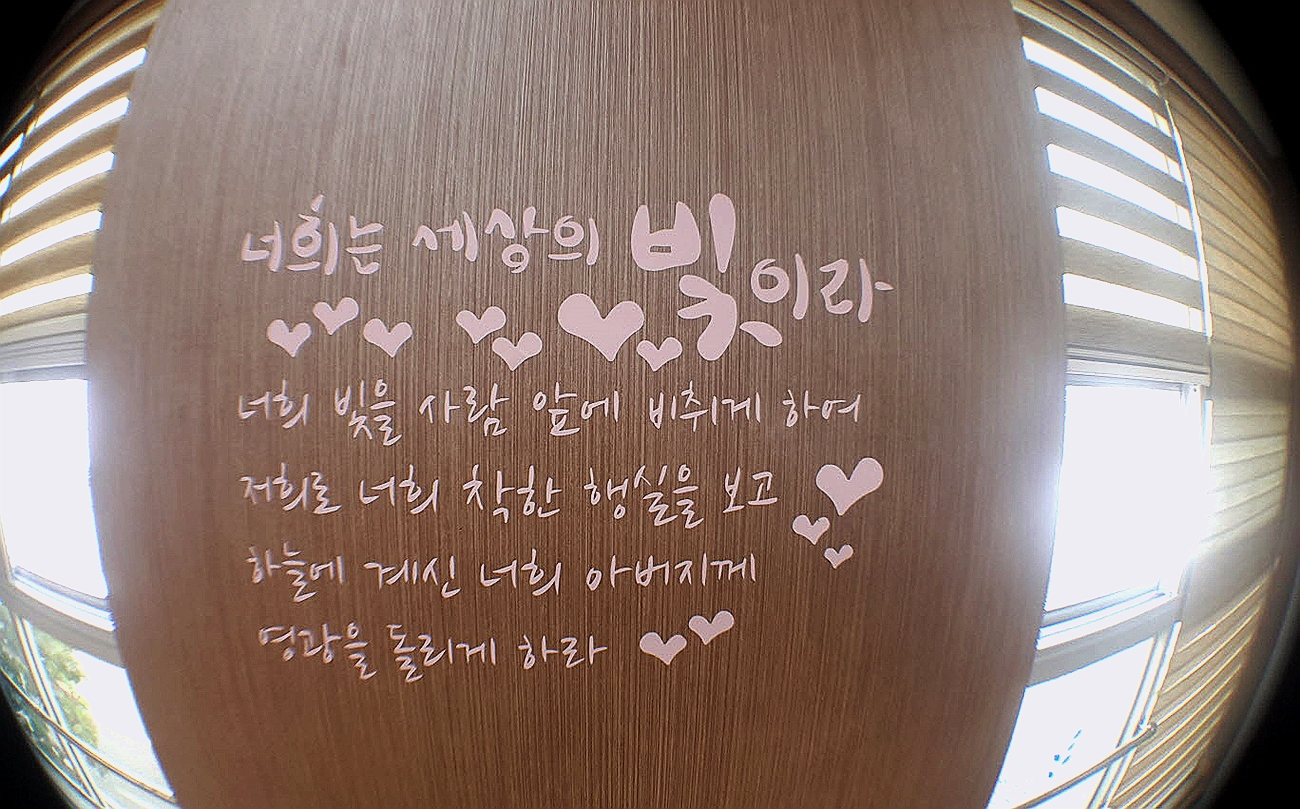 너희는 세상의 빛이라
너희 빛을 사람 앞에 비취게 하여
저희로 너희 착한 행실을 보고
하늘에 계신 너희 아버지께
영광을 돌리게 하라